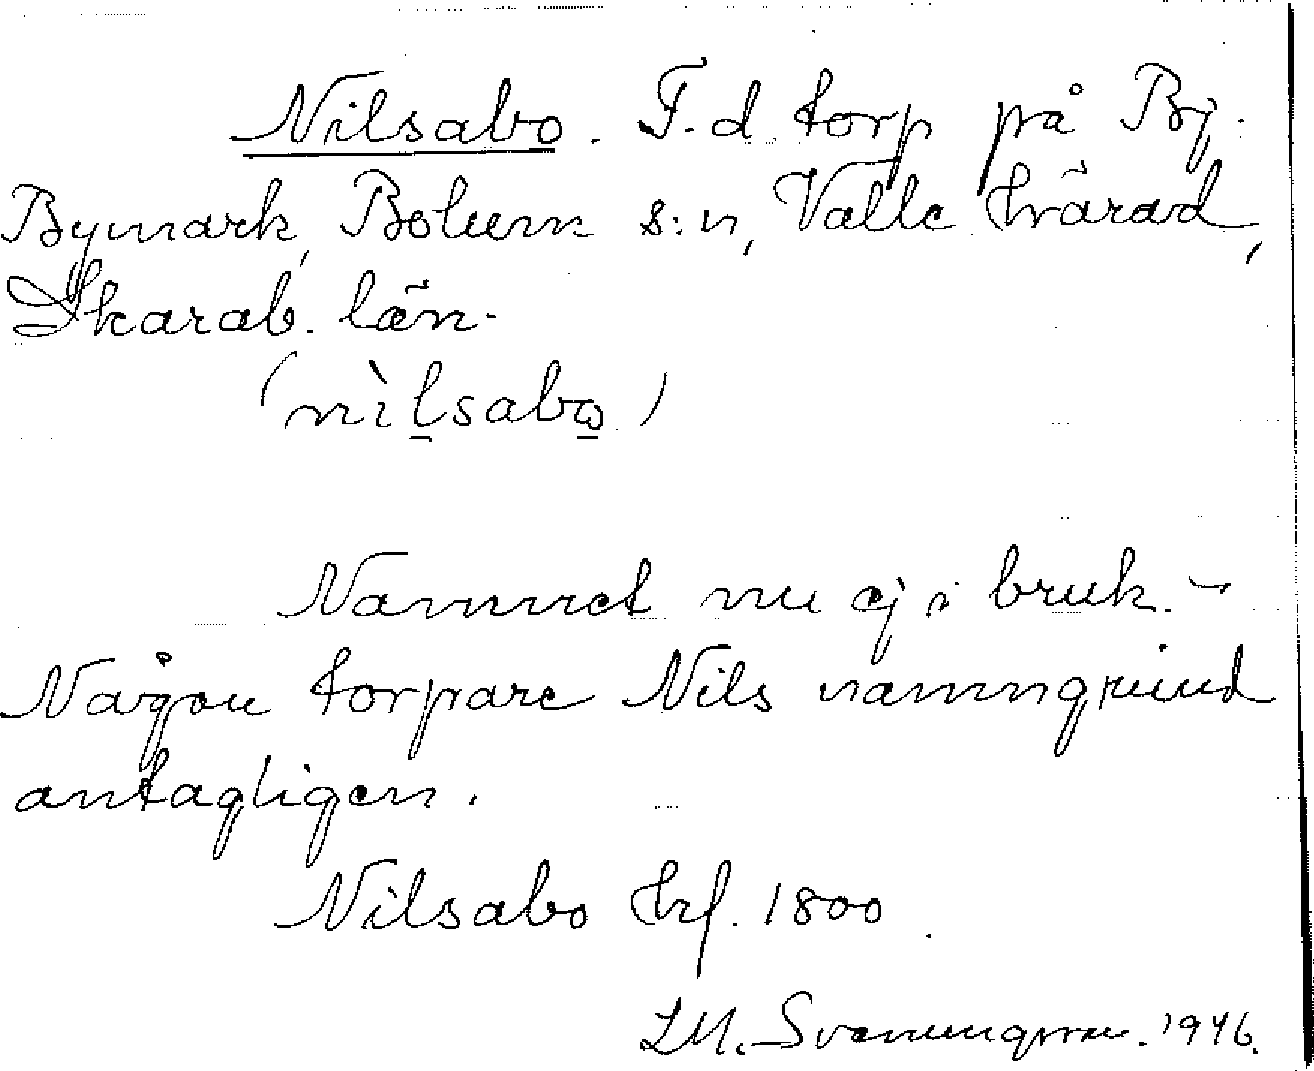 Nilsabo. F.d. torp på By.
Bymark, Bolum s:n, Valle härad,
Skarab. län.
(nìlsabo)
Namnet nu ej i bruk. –
Någon torpare Nils namngrund
antagligen.
Nilsabo Hfl. 1800.
Svenungsson. 1946.